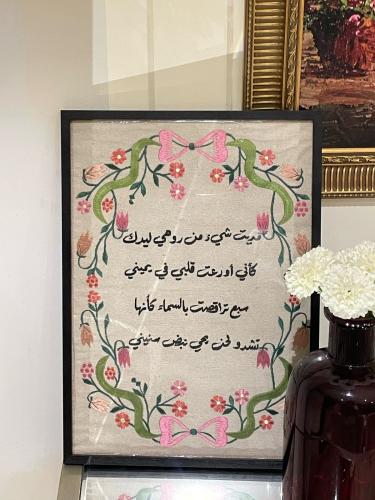 مديت شيء من روحي ليدك
كأني أودعت قلبي في يميني
سبع تراقصت بالسماء كأنها
تشدو لحن يحي نبض سنيني